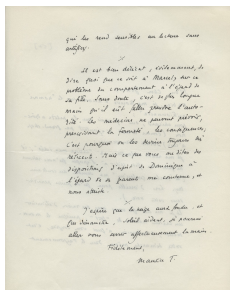 qui les rend sensibles au lecteur sans
artifice.
Il est bien délicat, évidemment, de
dire quoi que ce soit à Marcel, sur ce
problème du comportement à l'égard de
sa fille. Sans doute, c'est de plus longue
main qu'il eût fallu prendre l'auto-
rité. Les médecins ne peuvent prévoir,
les conséquences,
C'est pourquoi ou les devins
Mais ce que vous me dites des
dispositions d'esprit de Dominique à
l'égard de ce parent me consterne, et
nous attriste.
J'espère que la neige aura fondu, et
que dimanche, soleil aidant, je pourrai
aller vous serrer affectueusement la main
Fidèlement,
Maurice T.